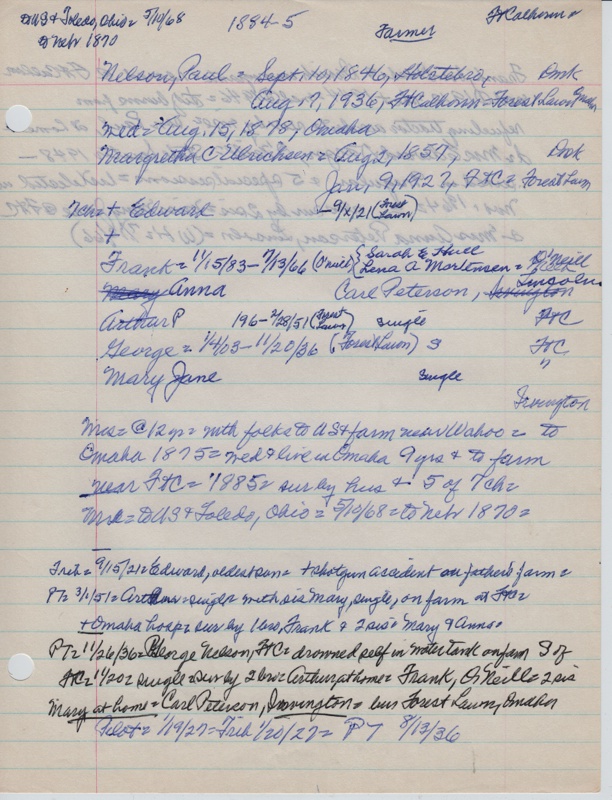 to US & Toledo, Ohio = 5/10/68 1884-5 Ft Calhoun
to Nebr 1870 Farmer
Nelson, Paul = Sept. 10, 1846, Holstebro, Dmk
Aug. 7, 1936, Ft Calhoun = Forest Lawn
med = Aug. 15, 1878, Omaha
Margretha C Ulrichsen = Aug 2, 1857, Dmk
Jan. 9, 1927, Ft C = Forest Lawn
7 ch = Edward - 9/x/21 (Forest Lawn)
+
Frank = 11/15/83 - 7/13/66 (O'neill) { Sarah E Hull O'Neill
Lena A Mortensen =
Mary Anna Carl Peterson, Irvington Lincoln
Arthur P 196 - 2/28/51 (Forest Lawn) single Ft C
George = 1/4/03 - 11/20/36 (Forest Lawn) S Ft C
Mary Jane single "
Irvington
Mrs = @ 12 yr = with folks to US & farm near Wahoo = to
Omaha 1875 = med & live in Omaha 9 yrs & to farm
near Ft C = 1885 = sur by hus & 5 of 7 ch =
Mr = to US & Toledo, Ohio = 5/10/68 = to Nebr 1870 =
Trib = 9/15/21 = Edward, oldest son = + shotgun accident on father's farm =
PT = 3/1/51 = Arthur = single with sis Mary, single, on farm at Ft C =
+ Omaha hosp = sur by 1 bro, Frank & 2 sis = Mary & Anna =
PT = 11/26/36 = George Nelson, Ft C = drowned self in water tank on farm S of
Ft C = 11/20 = single = sur by 2 bro = Arthur at home = Frank, O'Neill = 2 sis
Mary at home = Carl Peterson, Irvington = bur Forest Lawn, Omaha
Pilot = 1/19/27 = Trib 1/20/27 = PT 8/13/36